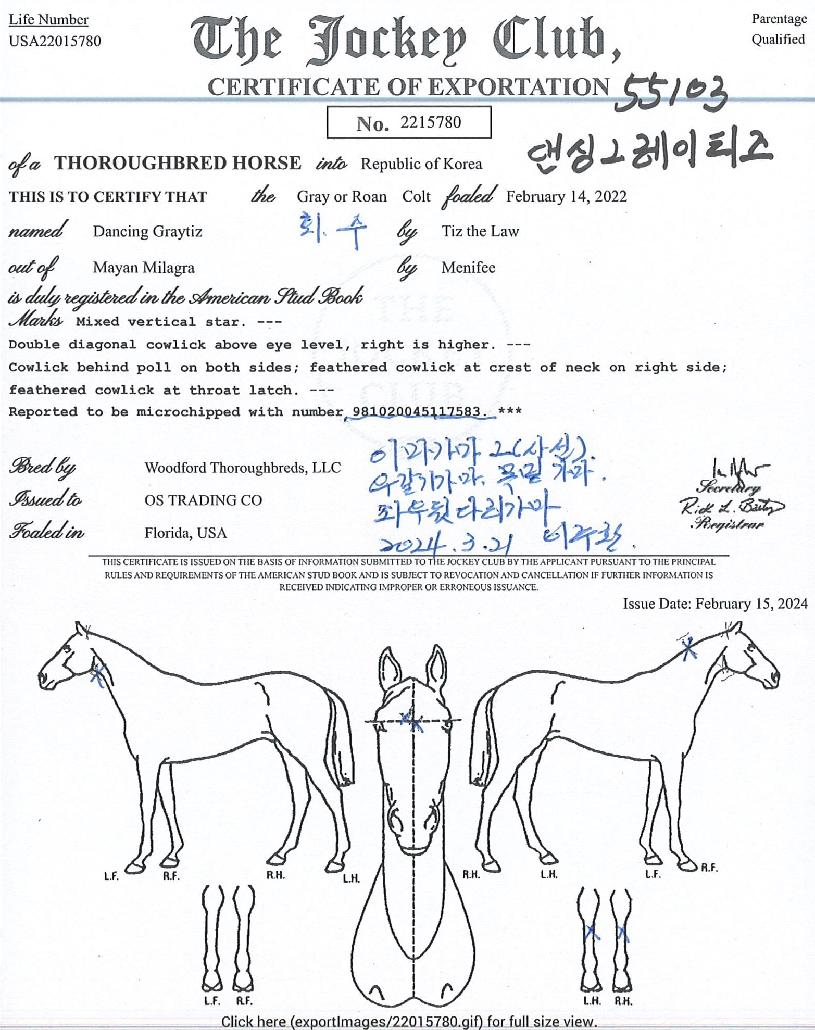 Life Number
USA22015780
The Jockey Club,
Parentage
Qualified
CERTIFICATE OF EXPORTATION
55103
No. 2215780
댄싱그레이티즈
of a THOROUGHBRED HORSE into Republic of Korea
THIS IS TO CERTIFY THAT the Gray or Roan Colt foaled February 14, 2022
named Dancing Graytiz 회. 수 by Tiz the Law
out of Mayan Milagra by Menifee
is duly registered in the American Stud Book
THE
CLUB
Marks Mixed vertical star. ---
Double diagonal cowlick above eye level, right is higher. ---
Cowlick behind poll on both sides; feathered cowlick at crest of neck on right side;
feathered cowlick at throat latch. ---
Reported to be microchipped with number 981020045117583. ***
이마가마 2(사선).
우갈기가마. 목밑 가마.
좌우뒷다리가마
2024.3.21
Bred by Woodford Thoroughbreds, LLC
Issued to OS TRADING CO
Foaled in Florida, USA
Secretary
Registrar
THIS CERTIFICATE IS ISSUED ON THE BASIS OF INFORMATION SUBMITTED TO THE JOCKEY CLUB BY THE APPLICANT PURSUANT TO THE PRINCIPAL
RULES AND REQUIREMENTS OF THE AMERICAN STUD BOOK AND IS SUBJECT TO REVOCATION AND CANCELLATION IF FURTHER INFORMATION IS
RECEIVED INDICATING IMPROPER OR ERRONEOUS ISSUANCE.
Issue Date: February 15, 2024
L.F. R.F. R.H. L.H. R.H. L.H. L.F. R.F.
L.F. R.F. L.H. R.H.
Click here (exportImages/22015780.gif) for full size view.